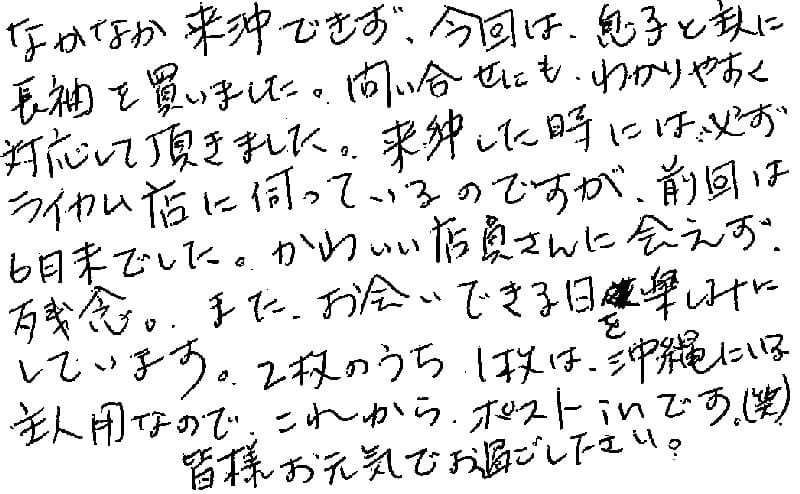 なかなか来沖できず、今回は、息子と主人に
長袖を買いました。問い合せにも、わかりやすく
対応して頂きました。来沖した時には必ず
ライカム店に伺っているのですが、前回は
6月末でした。かわいい店員さんに会えず、
残念。また、お会いできる日を楽しみに
しています。2枚のうち1枚は、沖縄にいる
主人用なので、これから、ポストinです。(笑)
皆様お元気でお過ごしください。